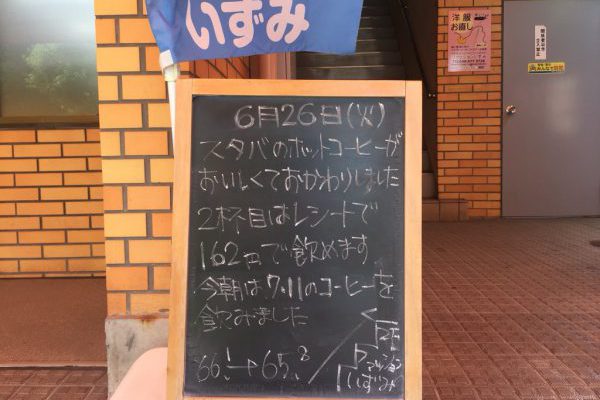 いずみ
洋服
お直し
6月26日(火)
スタバのホットコーヒーが
おいしくておかわりしました
2杯目はレシートで
162円で飲めます
今朝は7.11のコーヒーを
飲みました
66.1→65.8
2F
いずみ